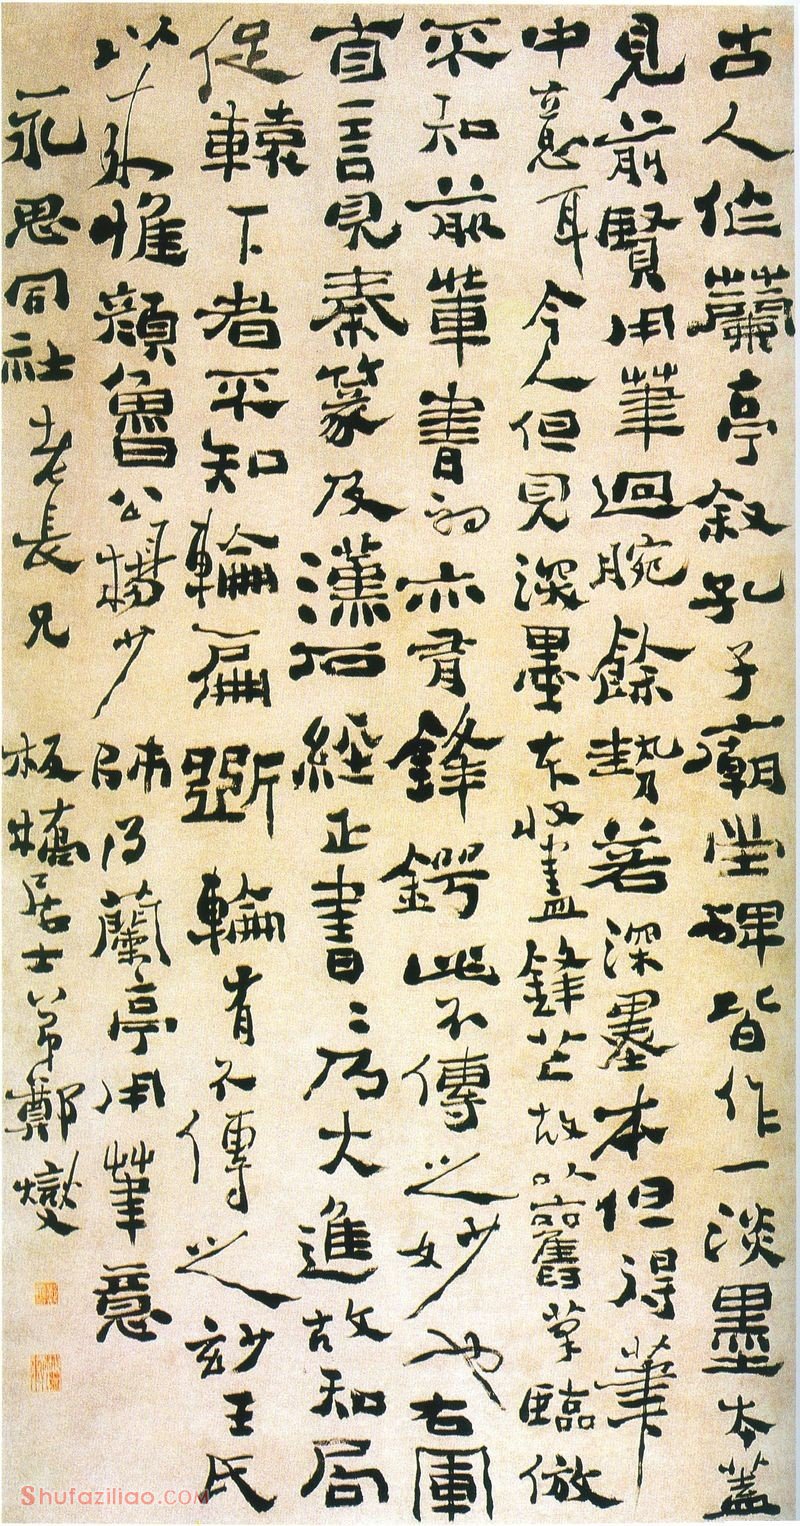 古人作蘭亭叙孔子廟堂碑皆作一淡墨本蓋
見前賢用筆迴腕餘勢若深墨本但得筆
中意耳今人但見深墨本收盡鋒芒故以舊筆臨倣
不知前輩書初亦有鋒鍔此不傳之妙也右軍
自言見秦篆及漢石經正書書乃大進故知局
促轅下者不知輪扁斲輪有不傳之妙王氏
以來惟顏魯公楊少師得蘭亭用筆意
永思同社老長兄 板橋居士弟鄭燮
Shufaziliao.COM